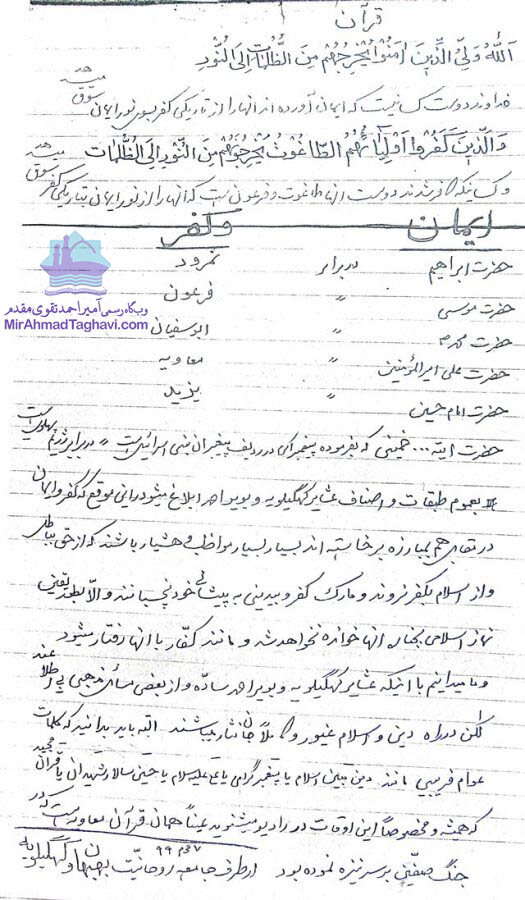 قرآن
اَللّٰهُ وَلِیُّ الَّذِینَ اٰمَنُوا یُخْرِجُهُمْ مِنَ الظُّلُمٰاتِ اِلَی النُّورِ
خداوند دوست کسانیست که ایمان آورده اند آنها را از تاریکی کفر بسوی نور ایمان سوق میدهد
وَالَّذِینَ کَفَرُوا اَوْلِیٰائُهُمُ الطّٰاغُوتُ یُخْرِجُوُنَهُمْ مِنَ النُّورِ اِلَی الظُّلُمٰاتِ
و کسانیکه کافر شدند دوست آنها طاغوت و فرعون است که آنها را از نور ایمان بتاریکی کفر سوق میدهد
ایمان وکفر
حضرت ابراهیم در برابر نمرود
حضرت موسی " فرعون
حضرت محمد ص " ابوسفیان
حضرت علی امیرالمؤمنین " معاویه
حضرت امام حسین " یزید
وبگاه رسمی آمیراحمد تقوی مقدم
MirAhmadTaghavi.com
حضرت آیته... خمینی که بفرموده پیغمبر اکرم در ردیف پیغمبران بنی اسرائیل است " در برابر رژیم پهلویست
بعموم طبقات و اصناف عشایر کهگیلویه و بویر احمد ابلاغ میشود در این موقع که کفر و ایمان
در مقابل هم بمبارزه برخاسته اند بسیار بسیار مواظب و هشیار باشند که از حق بباطل
و از اسلام بکفر نروند و مارک کفر و بیدینی به پیشانی خود نچسبانند و الّا بعد
نماز اسلامی بجنازه آنها خوانده نخواهد شد و مانند کفّار با آنها رفتار میشود
و ما میدانیم با اینکه عشایر کهگیلویه و بویر احمد ساده و از بعضی مسائل مذهبی بی اطلاعند
لکن در راه دین و اسلام غیور و کاملاً جان نثار میباشند البته باید بدانید که کلمات
عوام فریبی مانند دین مبین اسلام یا پیغمبر گرامی یا علی علیه السلام یا حسین سالار شهیدان یا قرآن مجید
که همیشه و مخصوصاً این اوقات در رادیو میشنوید عیناً همان قرآن معاویه است که در
جنگ صفّین بر سر نیزه نموده بود از طرف جامعه روحانیّت بهبهان و کهگیلویه